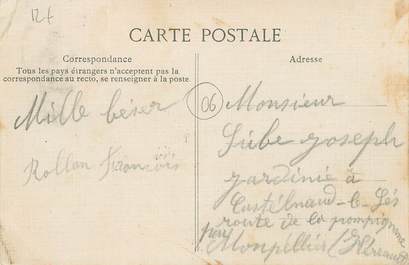 12f
CARTE POSTALE
Correspondance
Tous les pays étrangers n'acceptent pas la
correspondance au recto, se renseigner à la poste
Mille béser
Rollan Francois
06
Adresse
Monsieur
Sube joseph
jardinié à
Castélnaud-le-Lés
route de la pompignane
par Monpellier (Héreault)